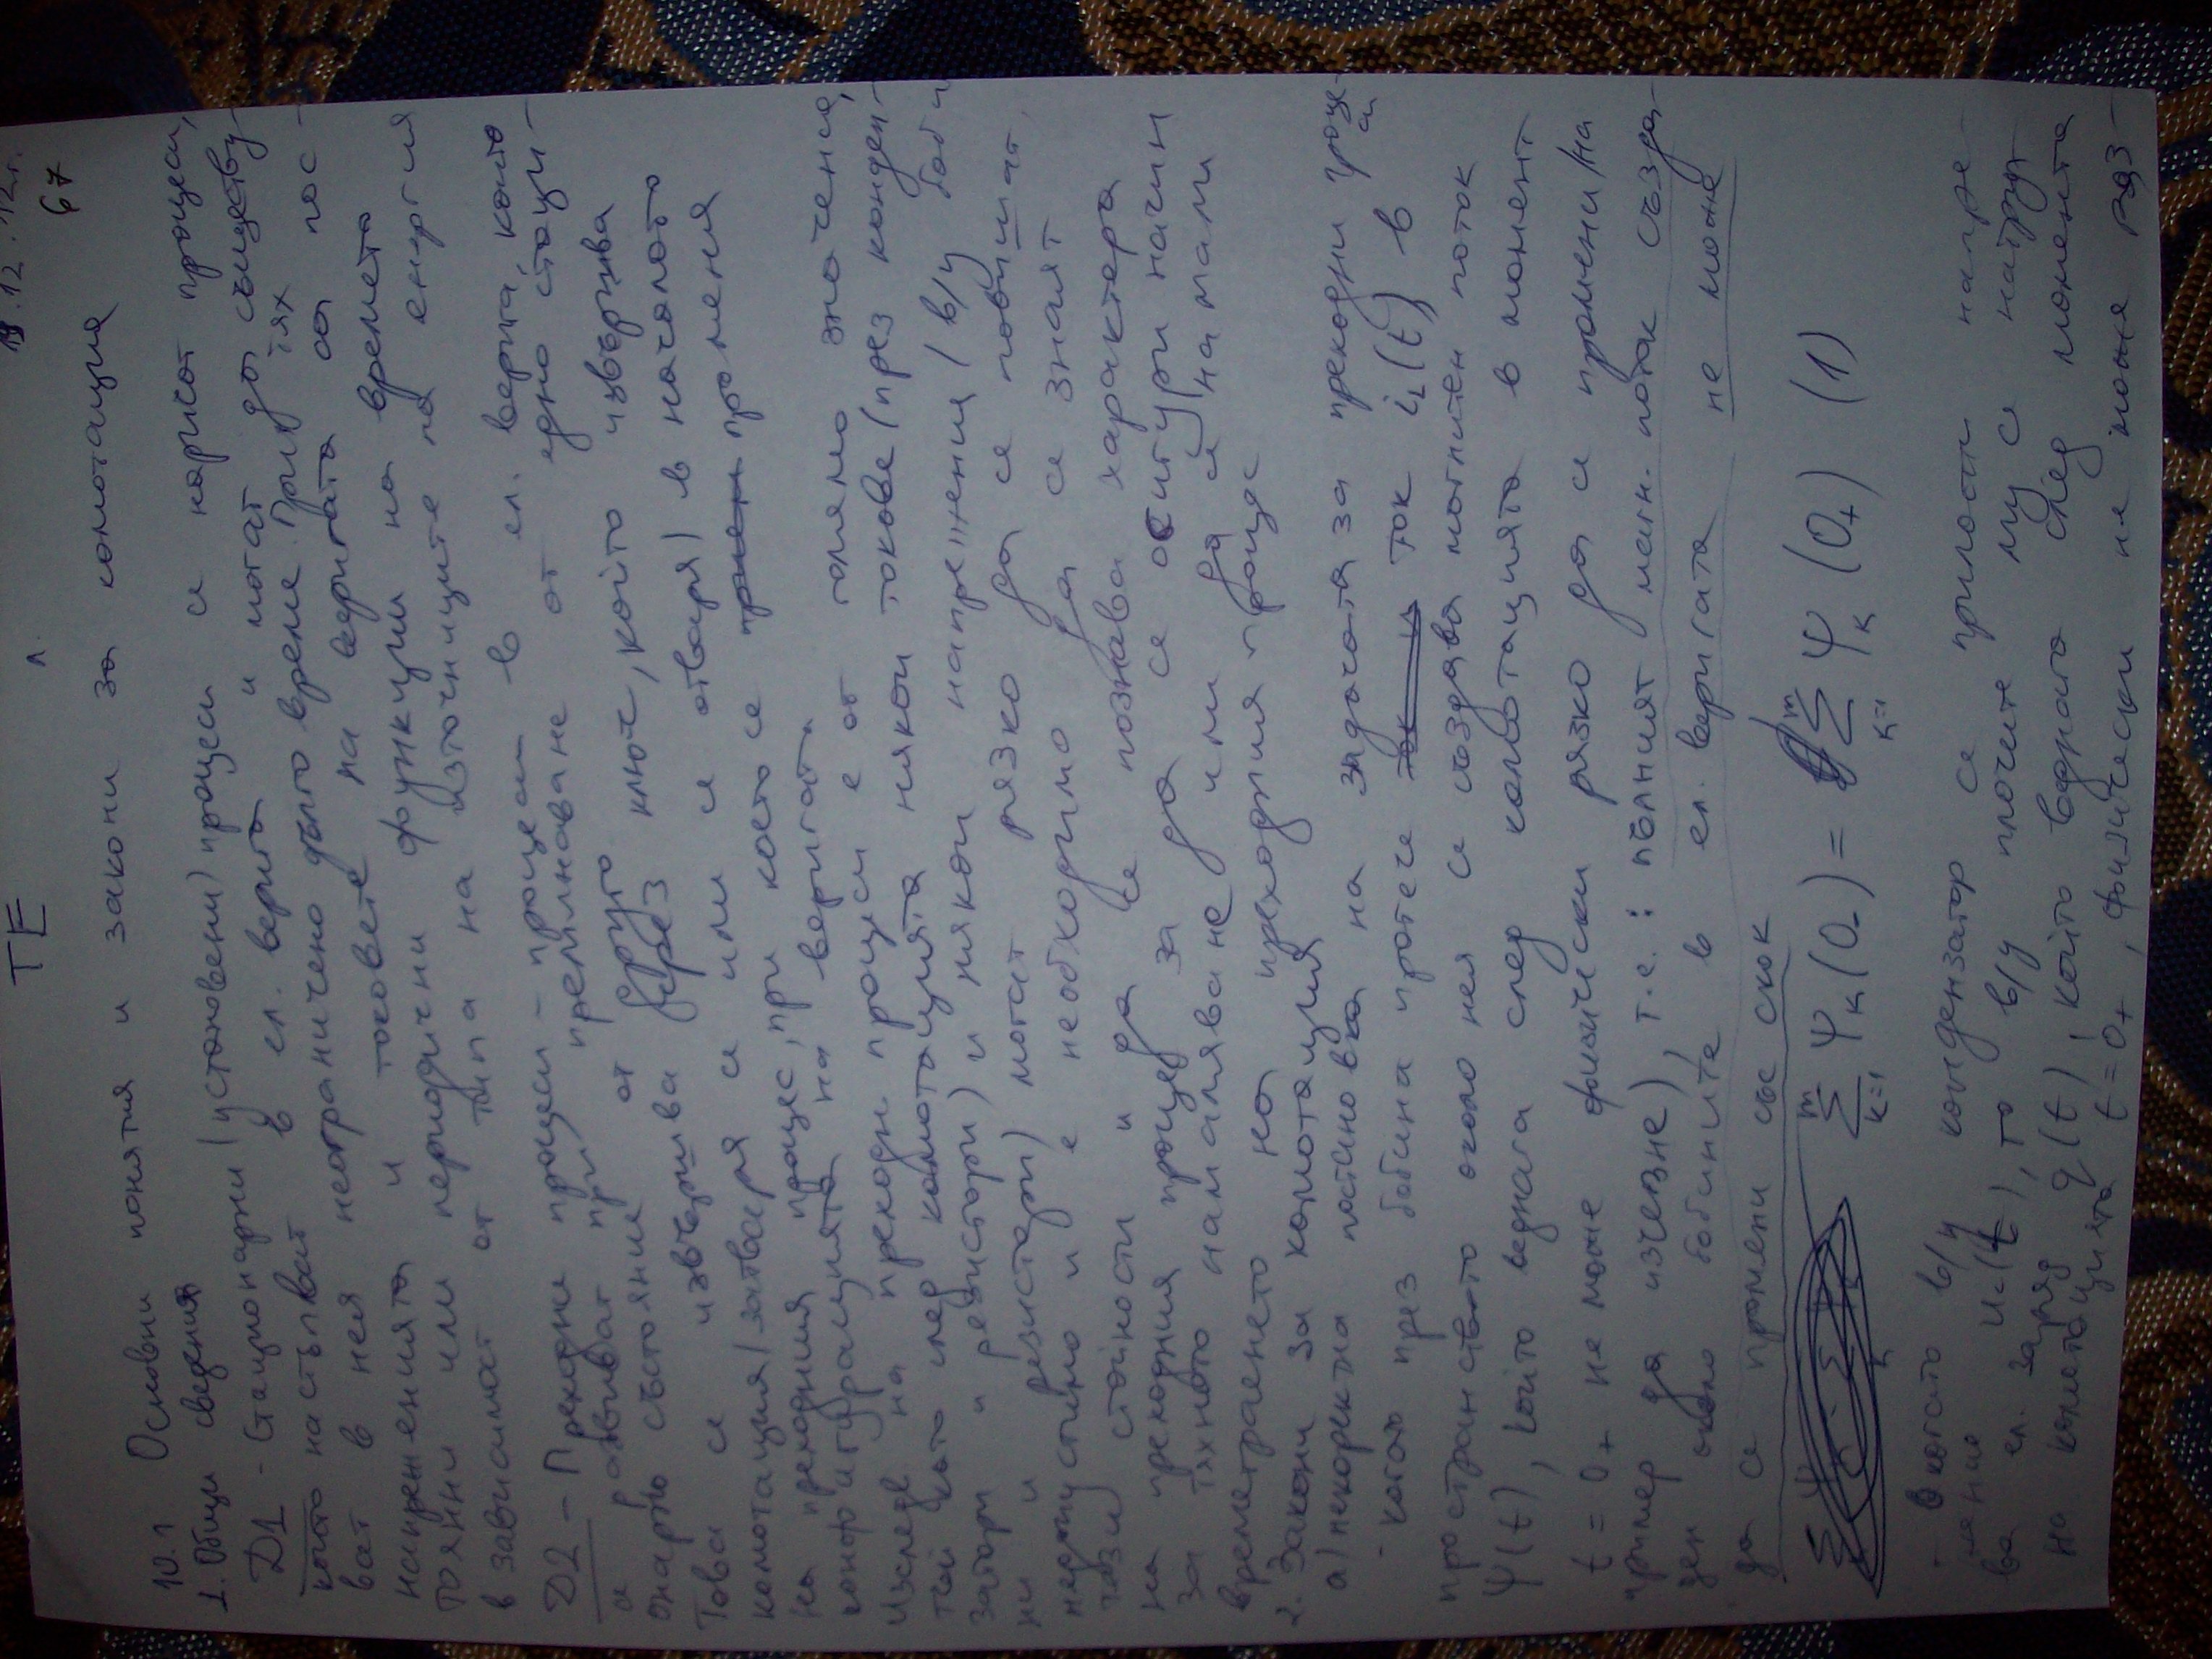 ТЕ 12.12г.
67
10.1 Основни понятия и закони за комотация
1. Общи сведения
D1 - Стационарни (установени) процеси се наричат процеси,
които настъпват в ел. верига и могат да съществу-
ват в нея неограничено дълго време. При тях
напреженията и токовете на веригата са пос-
тоянни или периодични функции на времето
в зависимост от типа на източниците на енергия
D2 - Преходни процеси - процеси в ел. верига, които
се развиват при преминаване от едно стаци-
онарно състояние от друго
Това се извършва чрез ключ, който извършва
комотация (затваря се или се отваря) в началото
на преходния процес, при което се промени променя
конфигурацията на веригата.
Изслед на преходни процеси е от голямо значение,
тъй като след комотацията някои токове (през конден-
затори и резистори) и някои напрежения (в/у боби
ни и резистери) могат рязко да се повишат,
недопустимо и е необходимо да се знаят
тези стойности и да се познава характера
на преходния процес за да се осигури начин
за тяхното намаляване или да се намали
времетраенето на преходния процес
2. Закони за комотация
а) некоректна постановка на задачата за преходни проце-
си
- когато през бобина протече ток ток iL(t) в
пространството около нея се създава магнитен поток
Ψ(t), който веднага след комотацията в момент
t = 0+ не може физически рязко да се промени /на
пример да изчезне), т.е.: пълният магн. поток създа-
ден около бобините в ел. веригата не може
да се промени със скок
Σ Ψk(0-) = Σ Ψk(0+) (1)
m m
k=1 k=1
- когато в/у кондензатор се приложи напре-
жение uc(t), то в/у плочите му се натруп-
ва ел. заряд q(t), който веднага след момента
на комотацията t = 0+, физически не може раз-